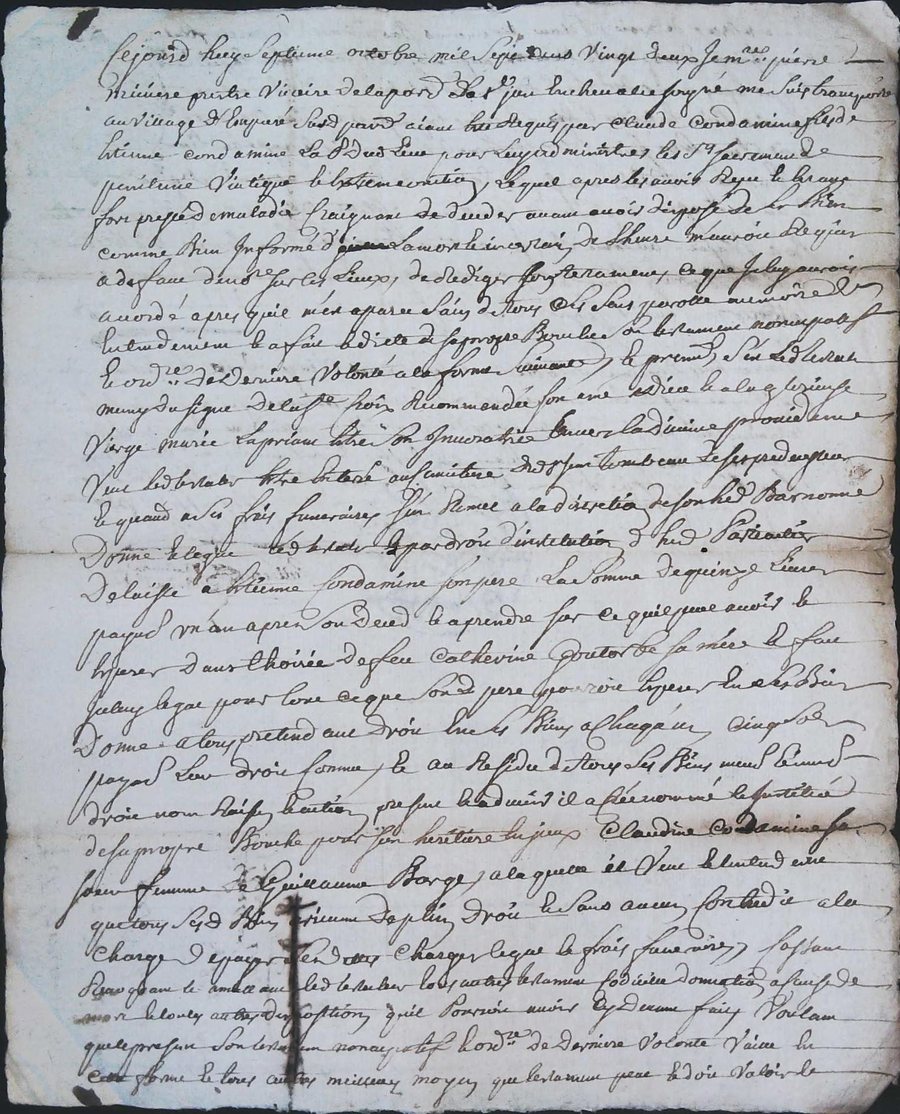 Cejourd huy Septieme octobre mil Sept cens Vingt deux Je me.re pierre
miviere prestre Vicaire de la par.d de St Jean En chevalie soigné me Suis transporté
au Village d' Sus.d par.d aiant este Requis par Claude Condamine fils de
Estienne Condamine La pour Luy administrer les Sts Sacremans de
penitence Viatique et Extreme onction, Lequel apres les avoir Reçu et
fort pressé de maladie Craignant de deceder avant avoir disposé de Ses Biens
comme Bien Informé de la mort et incertain de Lheure m'auroit Requis
a defaut de no.re sur les Lieux, de Rediger Son testament, ce que Je luy aurois
accordé apres quil m'est aparu Sain de tous Ces Sans parolle memoire et
Entendement et a fait et dicté de sa propre Bouche Son testament noncupatif
et ord.ce de Derniere Volonté a la forme Suivante, et premie.t S'est Led testateur
muny du signe de la Ste Croix Recommandée Son ame a dieu et a la glorieuse
Vierge marie La priant estre Son Invocatrice Envers la divine providence
Veut led testateur estre Enterré au Cimetiere dud St Jean tombeau de Ses predecesseurs
Et quand a Ses frais funeraires Sen Remet a la discretion de Son hed Bas nommé
Donne et legue led testateur et par droit d'institution d' hed Particuliere
Delaisse a Estienne Condamine Son pere La Somme de quinze Livres
payad un an apres Son Deced et a prendre Sur ce quil peut avoir et
Esperer dans lhoirée de feu Catherine Goutorbe Sa mere et fait
Ja luy legat pour tout ce que Sond pere pourroit Esperer En Ses Biens
Donne a tous pretendant droit En Ses Biens a Chaqun Cinq Sols
payad Leur droit formé, Et au Residu de tous Ses Biens meubl imeubl
droits nom Raisons et action present et advenir il a Crée nommé et Institué
de Sa propre Bouche pour Son heritiere Luy seux Claudine Condamine Sa
Soeur femme de Guillaume Barge, a laquelle il Veut et Entend
que tous Sesd Biens de plein droit et Sans aucun Contredit a la
Charge de payer Ses dettes Charges legat et frais funeraires, Cassant
Revoquant et annullant led testateur tous autres testament Codicille donation a Cause de
mort et toutes autres disposition quil Pourroit avoir Cy devant fait, Voulant
que le present Son testament noncupatif et ord.ce de Derniere Volonté Vaille En
Cette forme et tous autres meilleurs moyen que testament peut et doit Valoir et